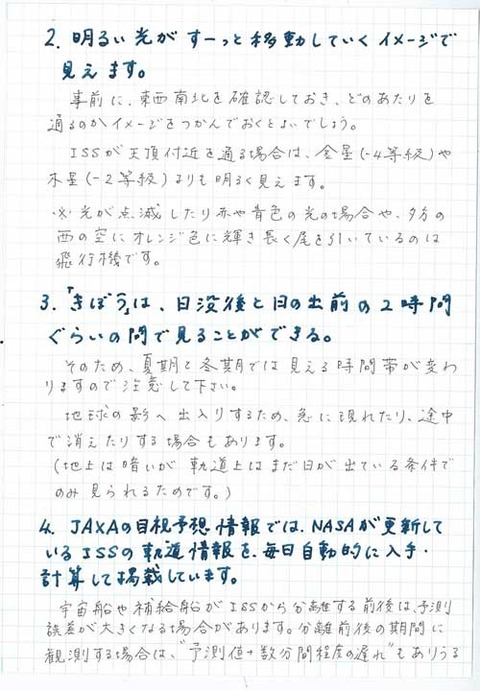 2. 明るい光がすーっと移動していくイメージで
見えます。
事前に、東西南北を確認しておき、どのあたりを
通るのかイメージをつかんでおくとよいでしょう。
ISSが天頂付近を通る場合は、金星(-4等級)や
木星(-2等級)よりも明るく見えます。
※光が点滅したり赤や青色の光の場合や、夕方の
西の空にオレンジ色に輝き長く尾を引いているのは
飛行機です。
3.「きぼう」は、日没後と日の出前の2時間
ぐらいの間で見ることができる。
そのため、夏期と冬期では見える時間帯が変わ
りますので注意して下さい。
地球の影へ出入りするため、急に現れたり、途中
で消えたりする場合もあります。
(地上は暗いが軌道上はまだ日が出ている条件で
のみ見られるためです。)
4. JAXAの目視予想情報では、NASAが更新して
いるISSの軌道情報を、毎日自動的に入手・
計算して掲載しています。
宇宙船や補給船がISSから分離する前後は、予測
誤差が大きくなる場合があります。分離前後の期間に
観測する場合は、"予測値+数分間程度の遅れ"もありうる